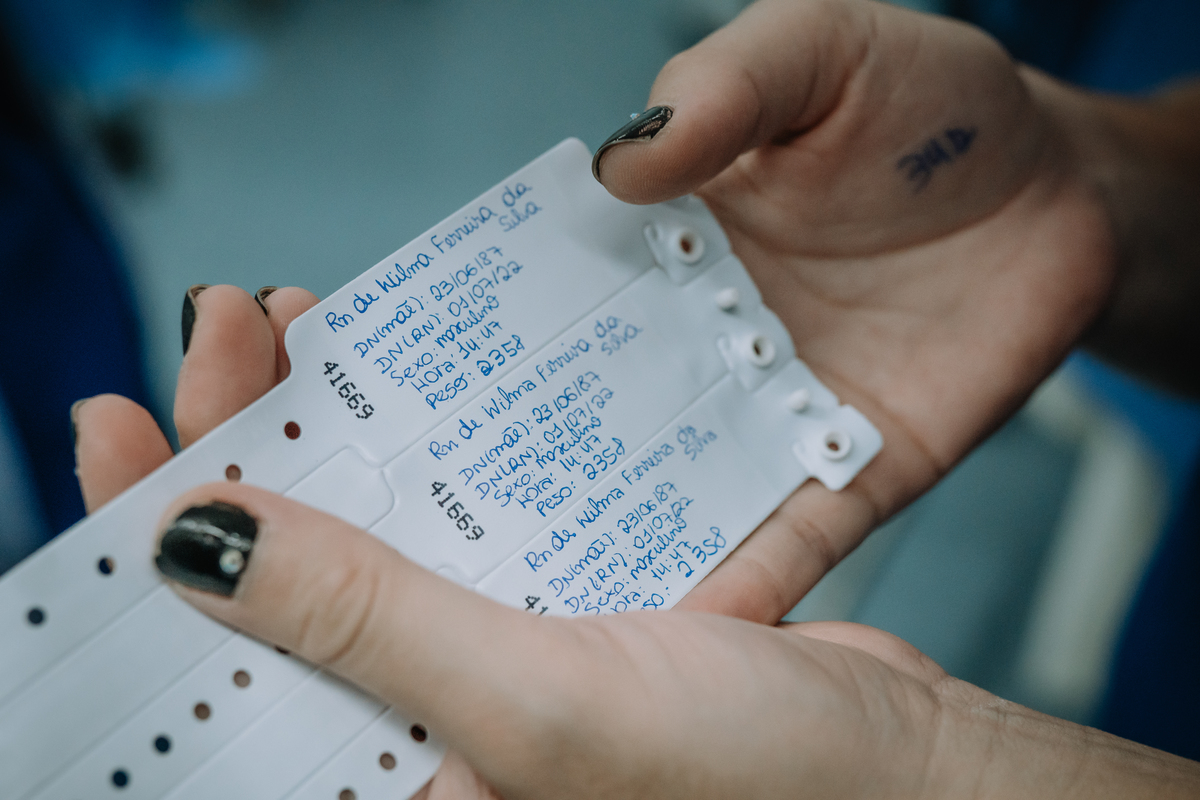 Rn de Wilma Ferreira da
Silva
DN(mãe): 23/06/87
DN(RN): 01/07/22
Sexo: masculino
Hora: 14:47
Peso: 2358
41669
Rn de Wilma Ferreira da
Silva
DN(mãe): 23/06/87
DN(RN): 01/07/22
Sexo: masculino
Hora: 14:47
Peso: 2358
41669
Rn de Wilma Ferreira da
Silva
DN(mãe): 23/06/87
DN(RN): 01/07/22
Sexo: masculino
Hora: 14:47
so: 2358
41